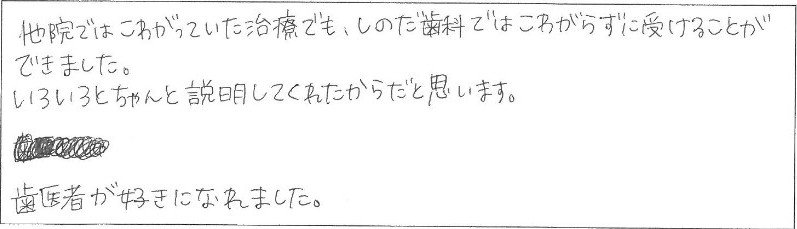 他院ではこわがっていた治療でも、しのだ歯科ではこわがらずに受けることが
できました。
いろいろとちゃんと説明してくれたからだと思います。
歯医者が好きになれました。